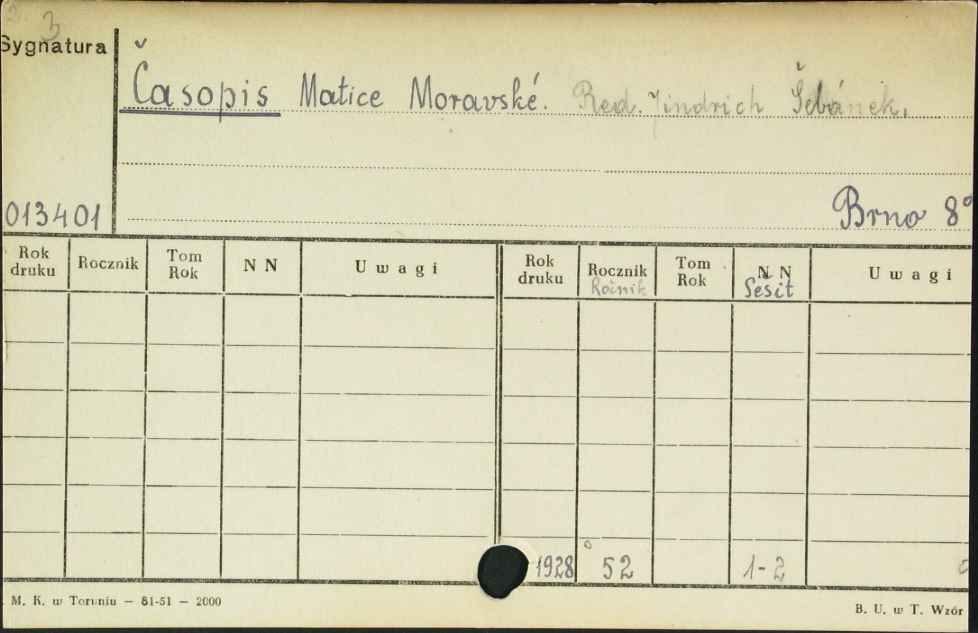 3
Sygnatura
Časopis Matice Moravské. Red. Jindrich Šebánek.
013401
Brno 8°
Rok druku Rocznik Tom Rok N N Uwagi Rok druku Rocznik Ročnik Tom Rok N N Sešit Uwagi
1928 52 1-2
M. K. w Toruniu — 51-51 — 2000
B. U. w T. Wzór